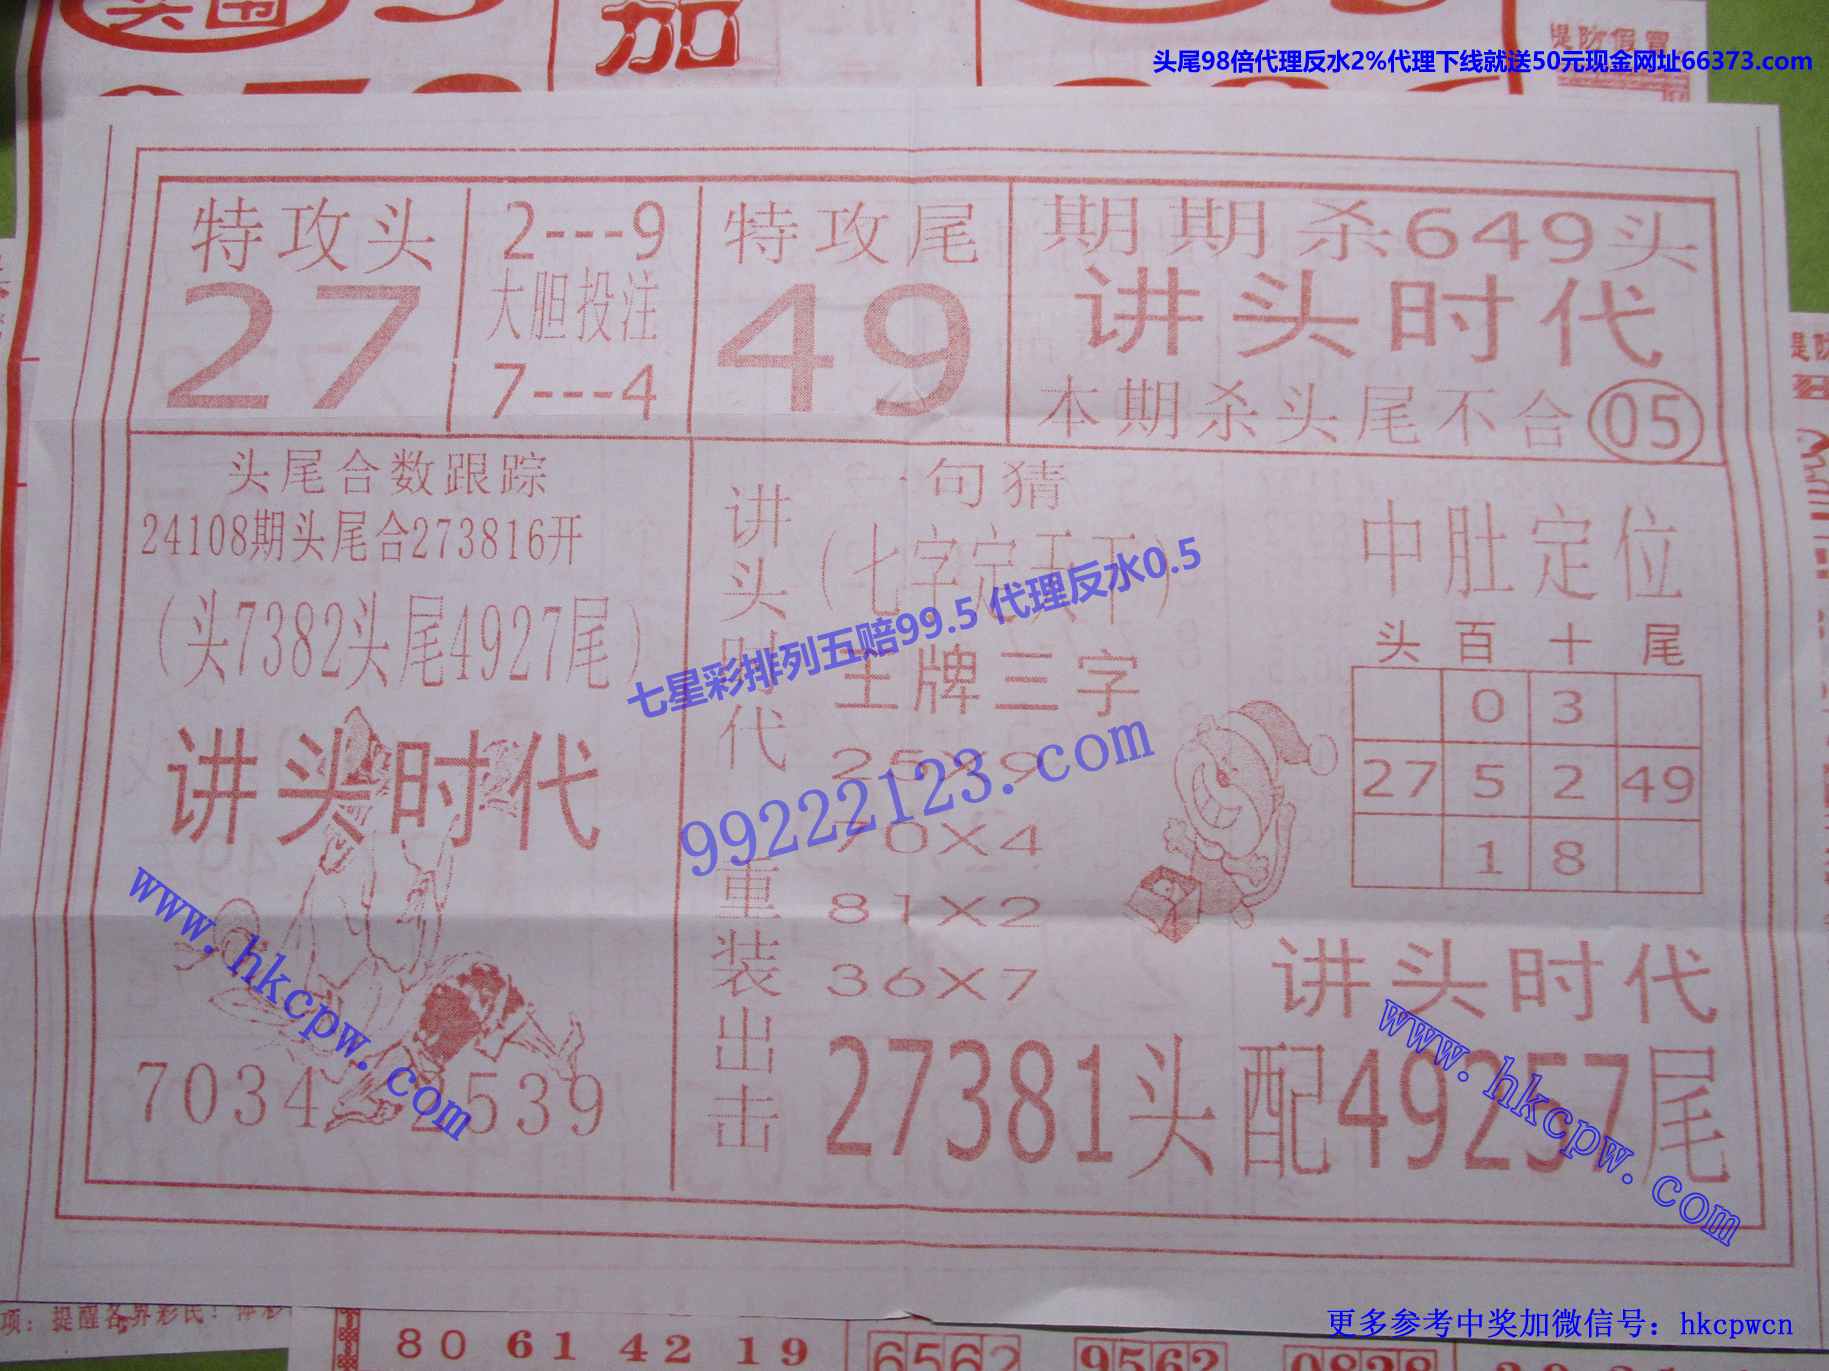 加
提防假冒
头尾98倍代理反水2%代理下线就送50元现金网址66373.com
特攻头
27
2---9
大胆投注
7---4
特攻尾
49
期期杀649头
讲头时代
本期杀头尾不合05
头尾合数跟踪
24108期头尾合273816开
(头7382头尾4927尾)
讲头时代
7034 2539
讲头时代
重装出击
一句猜
(七字定天下)
王牌三字
25X9
70X4
81X2
36X7
中肚定位
头 百 十 尾
0 3
27 5 2 49
1 8
讲头时代
27381头配49257尾
七星彩排列五赔99.5 代理反水0.5
99222123.com
www.hkcpw.com
www.hkcpw.com
项：提醒各界彩民！
80 61 42 19
6562 9562 0828
更多参考中奖加微信号：hkcpwcn